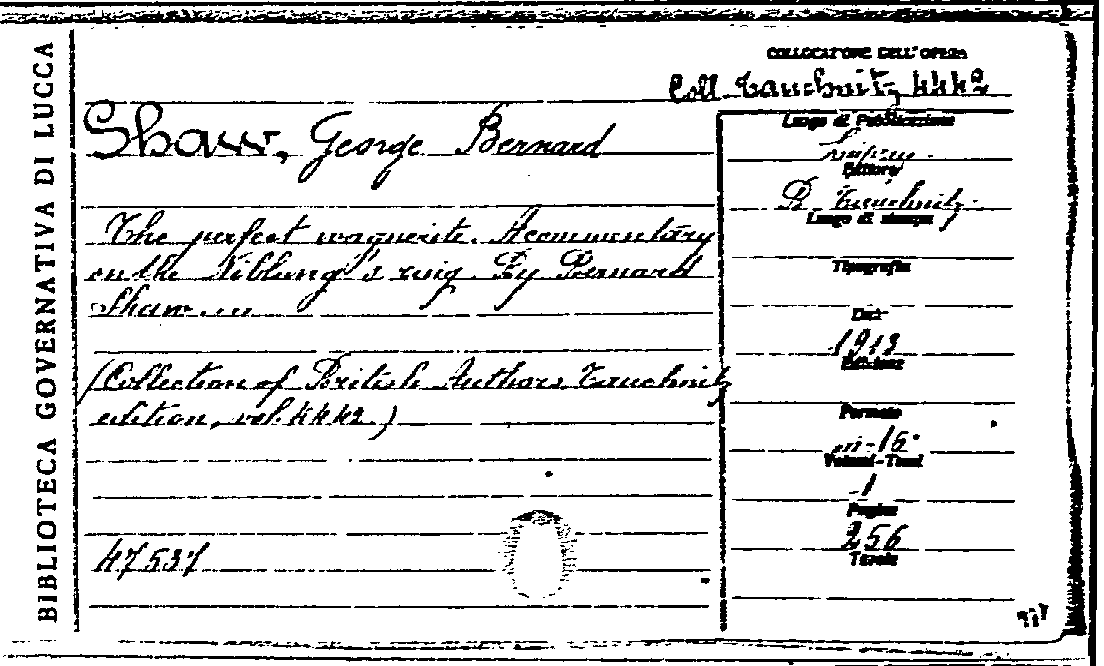 BIBLIOTECA GOVERNATIVA DI LUCCA
COLLOCAZIONE DELL'OPERA
Coll. Tauchnitz 4442
Shaw, George Bernard
The perfect wagnerite. A commentary
on the Niblung's ring. By Bernard
Shaw....
(Collection of British Authors Tauchnitz
edition, vol. 4442.)
47537
Luogo di Pubblicazione
Leipzig
Editore
B. Tauchnitz
Luogo di stampa
Tipografia
Dati
1913
Edizione
Formato
in-16°
Volumi-Tomi
1
Pagine
256
Tavole